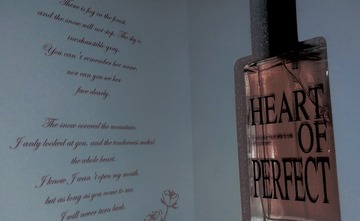 There is fog in the forest,
and the snow will not stop. The sky is
inexhaustible grey.
You can't remember her name,
nor can you see her
face clearly.
The snow covered the mountain.
I only looked at you, and the tenderness melted
the whole heart.
I know I won't open my mouth,
but as long as you come to me
I will never turn back.
HEART
OF
PERFECT